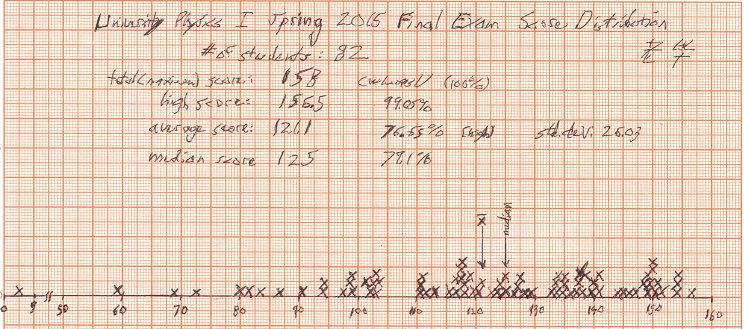 University Physics I Spring 2015 Final Exam Score Distribution
# of students: 82
total (maximum) score: 158 (100%)
high score: 156.5 99.05%
average score: 121.1 76.65% std. dev. 26.03
median score 125 79.1%
x̄ median
0 5 50 60 70 80 90 100 110 120 130 140 150 160